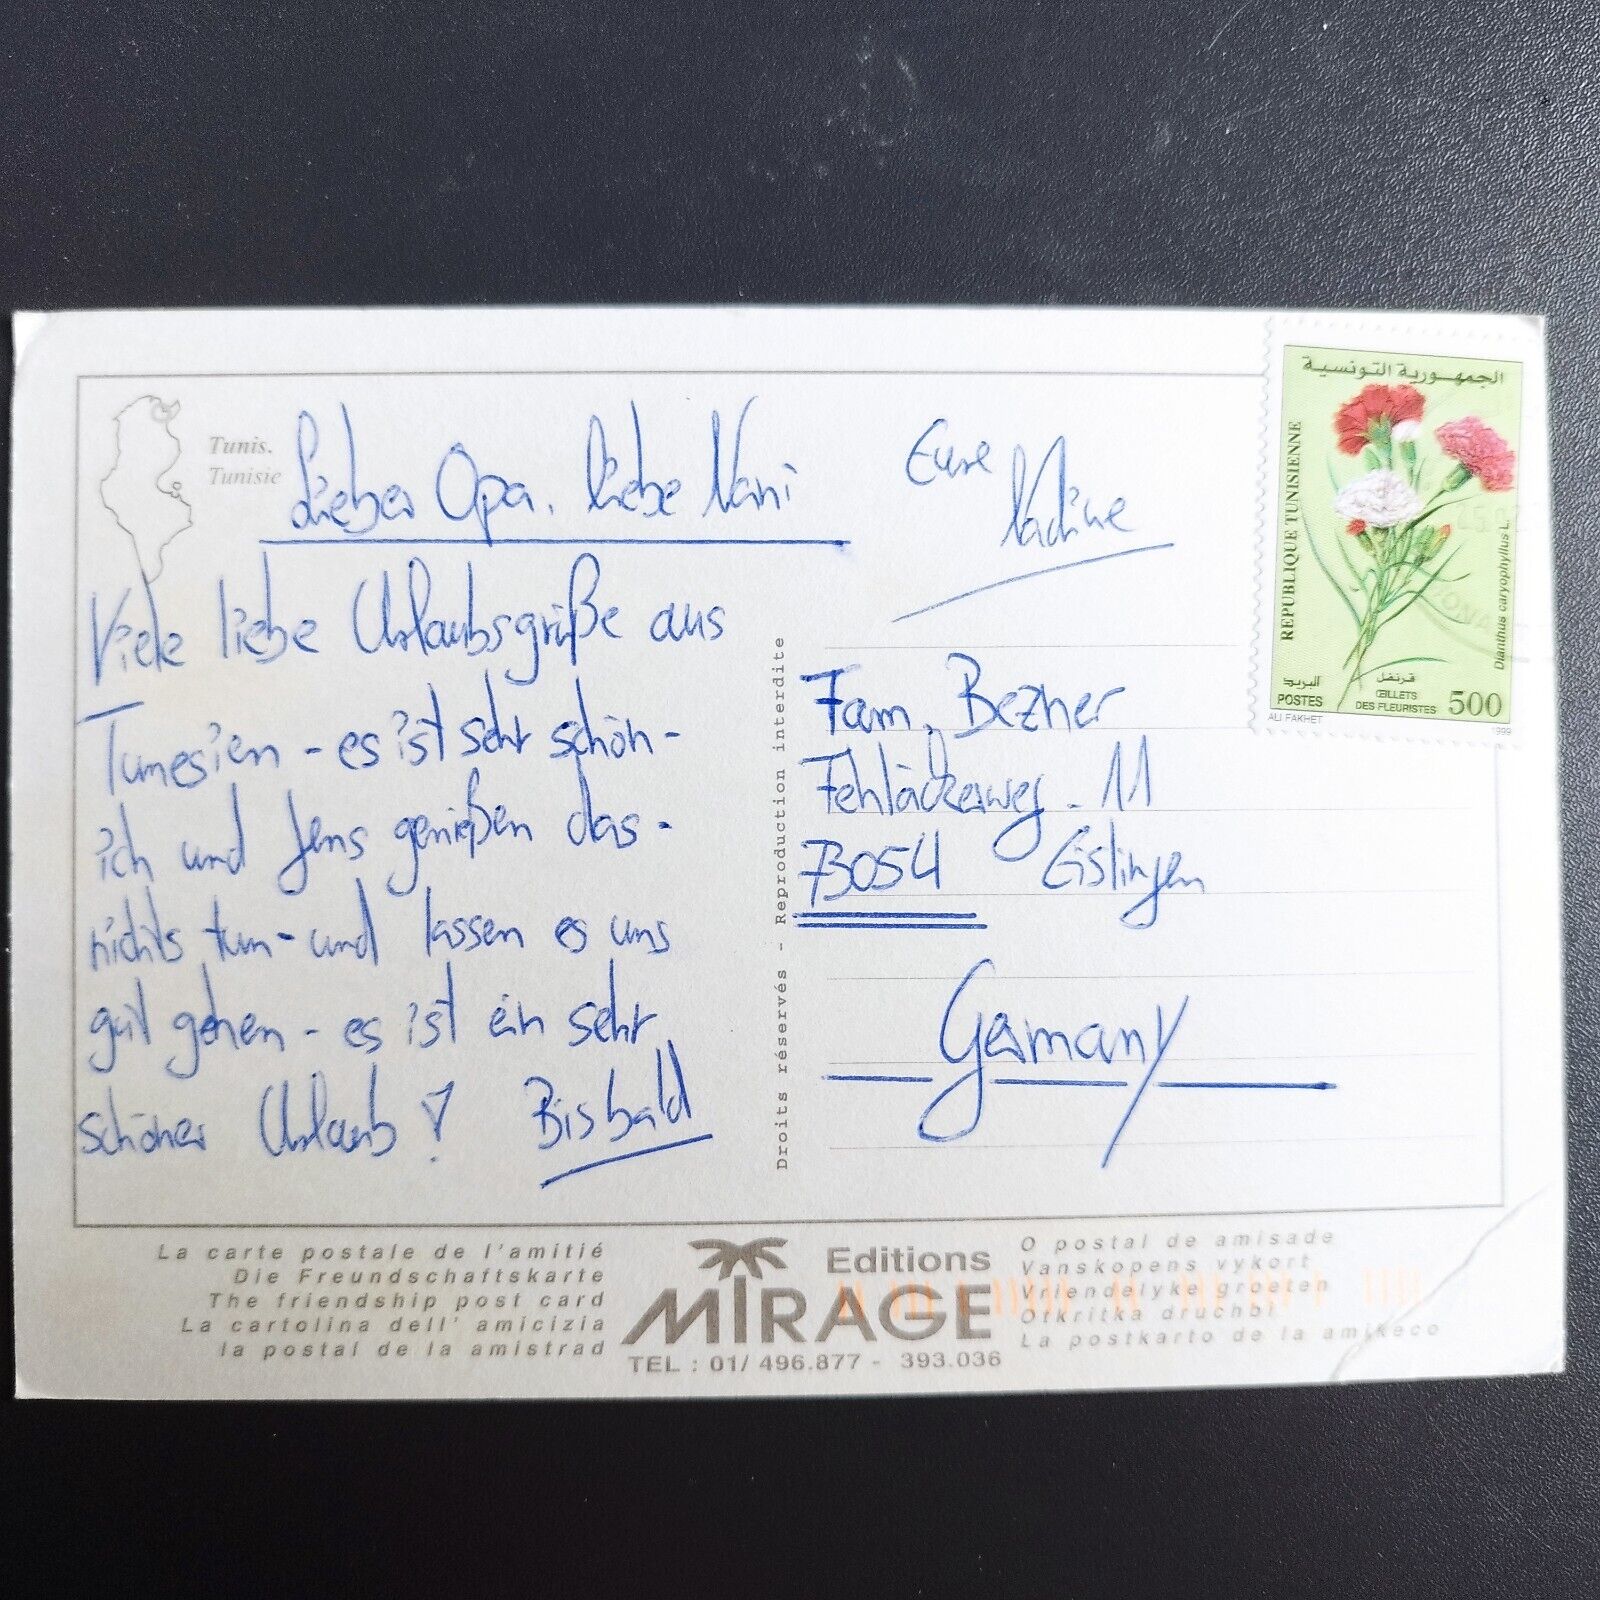 Tunis.
Tunisie
Lieber Opa. liebe Nani
Viele liebe Urlaubsgrüße aus
Tunesien - es ist sehr schön -
ich und Jens genießen das -
nichts tun - und lassen es uns
gut gehen - es ist ein sehr
schöner Urlaub!
Bisbald
Eure
Nadine
Droits réservés - Reproduction interdite
Fam. Bezner
Fehläckerweg. 11
73054 Eislingen
Germany
الجمهورية التونسية
REPUBLIQUE TUNISIENNE
Dianthus caryophyllus L.
البريد
POSTES
قرنفل
ŒILLETS
DES FLEURISTES
500
ALI FAKHET
1999
La carte postale de l'amitié
Die Freundschaftskarte
The friendship post card
La cartolina dell' amicizia
la postal de la amistrad
Editions
MIRAGE
TEL : 01/ 496.877 - 393.036
O postal de amisade
Vanskopens vykort
Vriendelyke groeten
Otkritka druchbi
La postkarto de la amikeco